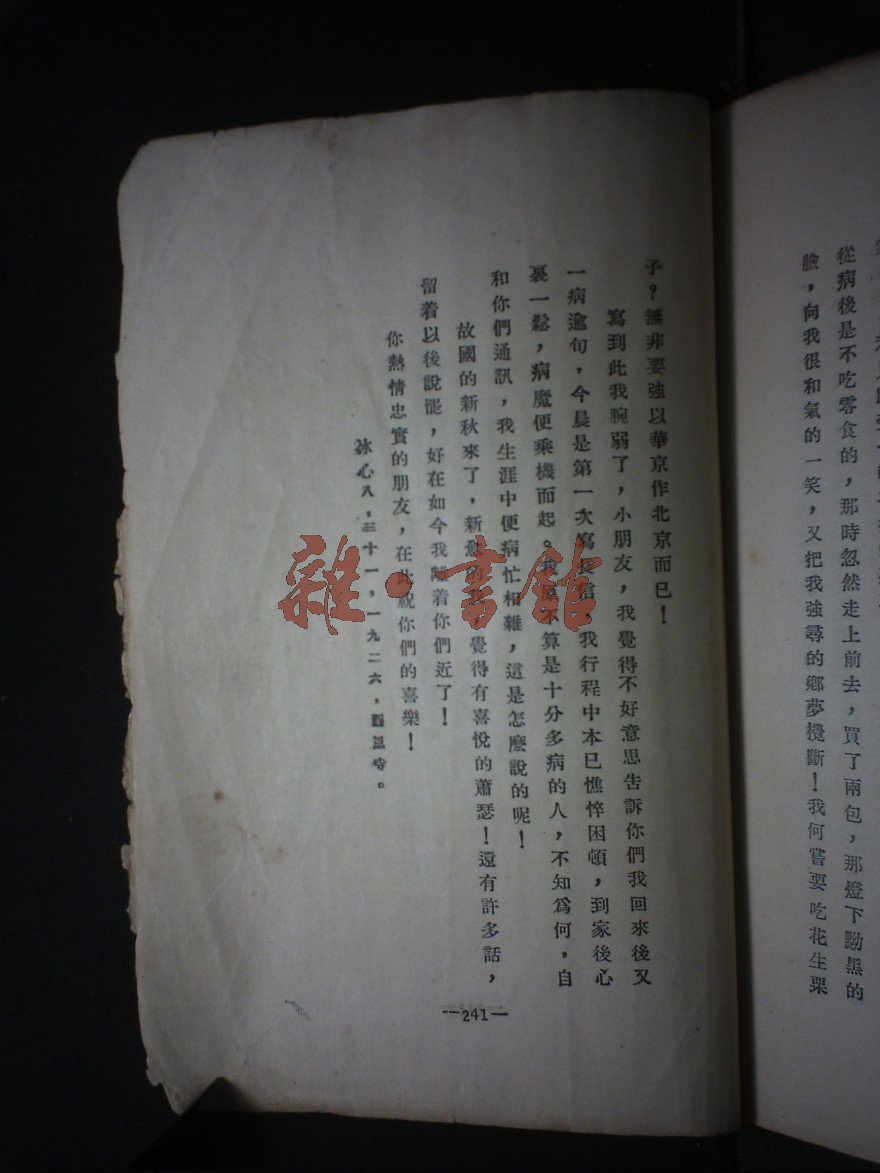 從病後是不吃零食的，那時忽然走上前去，買了兩包，那燈下黝黑的
臉，向我很和氣的一笑，又把我強尋的鄉夢攪斷！我何嘗要吃花生栗
子？無非要強以華京作北京而已！
寫到此我腕弱了，小朋友，我覺得不好意思告訴你們我回來後又
一病逾旬，今晨是第一次寫長信。我行程中本已憔悴困頓，到家後心
裏一鬆，病魔便乘機而起。我不算是十分多病的人，不知爲何，自
和你們通訊，我生涯中便病忙相雜，這是怎麼說的呢！
故國的新秋來了，新愈的我，覺得有喜悅的蕭瑟！還有許多話，
留着以後說罷，好在如今我離着你們近了！
你熱情忠實的朋友，在此祝你們的喜樂！
冰心八，三十一，一九二六，圓恩寺。
—241—
雜·書館